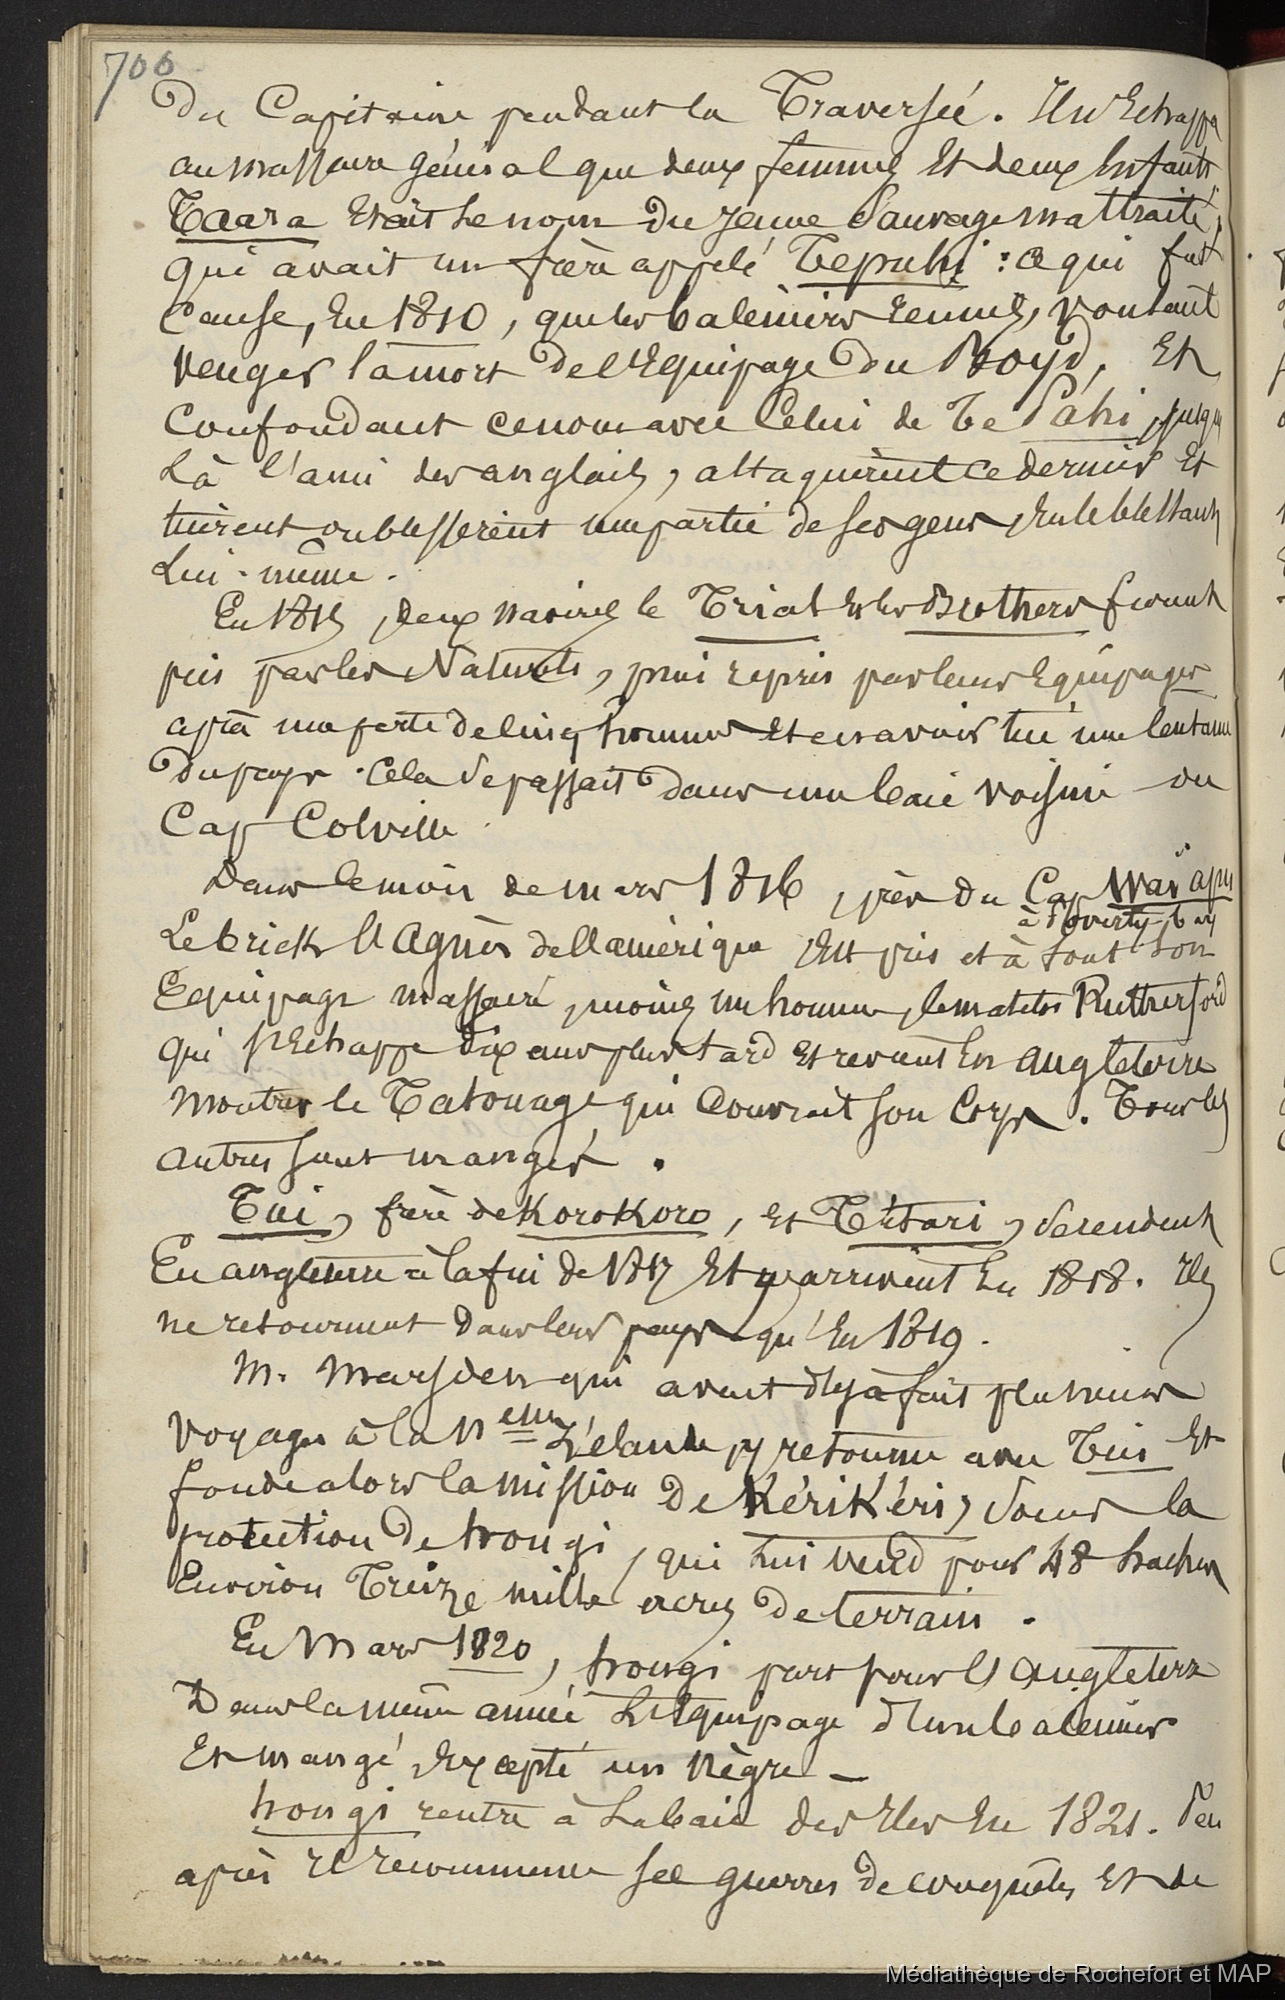 700
Du Capitaine pendant la Traversée. Il n'Echappa
au massacre général que deux femmes Et deux Enfants.
Taara Etait le nom du jeune Sauvage maltraité,
qui avait un frère appelé Tepuhi : ce qui fut
cause, En 1810, que les baleiniers réunis, voulant
venger la mort de l'Equipage du Boyd, Et
confondant ce nom avec Celui de Te Pahi, jusque
là l'ami des anglais, attaquèrent ce dernier Et
tuèrent ou blessèrent une partie de ses gens, En le blessant
Lui-même.
En 1815, deux navires le Trial Et les Brothers furent
pris par les Naturels, puis repris par leurs Equipages
après une perte de Cinq hommes Et en avoir tué une Centaine
du pays. Cela se passait dans une baie voisine du
Cap Colville.
Dans le mois de mars 1816, près du Cap Waï apu
à Poverty-bay
Le brick l'Agnès de l'amérique Est pris et à tout Son
Equipage massacré, moins un homme, le matelot Rutherford
qui s'Echappe dix ans plus tard Et revient En angleterre
montrer le Tatouage qui Couvrait son Corps. Tous les
autres sont mangés.
Tui, frère de KoroKoro, Et Tétari, se rendent
En angleterre à la fin de 1817 Et y arrivent En 1818. Ils
ne retournent dans leur pays qu'En 1819.
M. Marsden qui avait déjà fait plusieurs
voyages à la Nelle Zélande, y retourne avec Tui Et
fonde alors la mission De KériKéri, sous la
protection De hongi, qui Lui vend pour 48 haches
Environ Treize mille acres De terrain.
En Mars 1820, hongi part pour l'Angleterre
Dans la même année L'Equipage d'un baleinier
Est mangé, Excepté un nègre —
hongi rentre à La baie des Iles En 1821. Peu
après Il recommence ses guerres De conquêtes Et de
Médiathèque de Rochefort et MAP